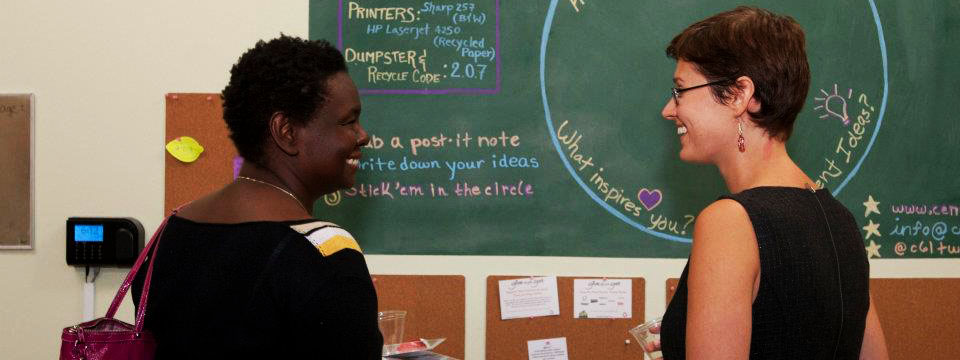 PRINTERS: Sharp 257
(B&W)
HP Laserjet 4250
(Recycled
Paper)
DUMPSTER &
RECYCLE CODE: 2.0.7
a post-it note
down your ideas
Stick'em in the circle
What inspires you?
Ideas?
www.cen
info@c
@c61tw